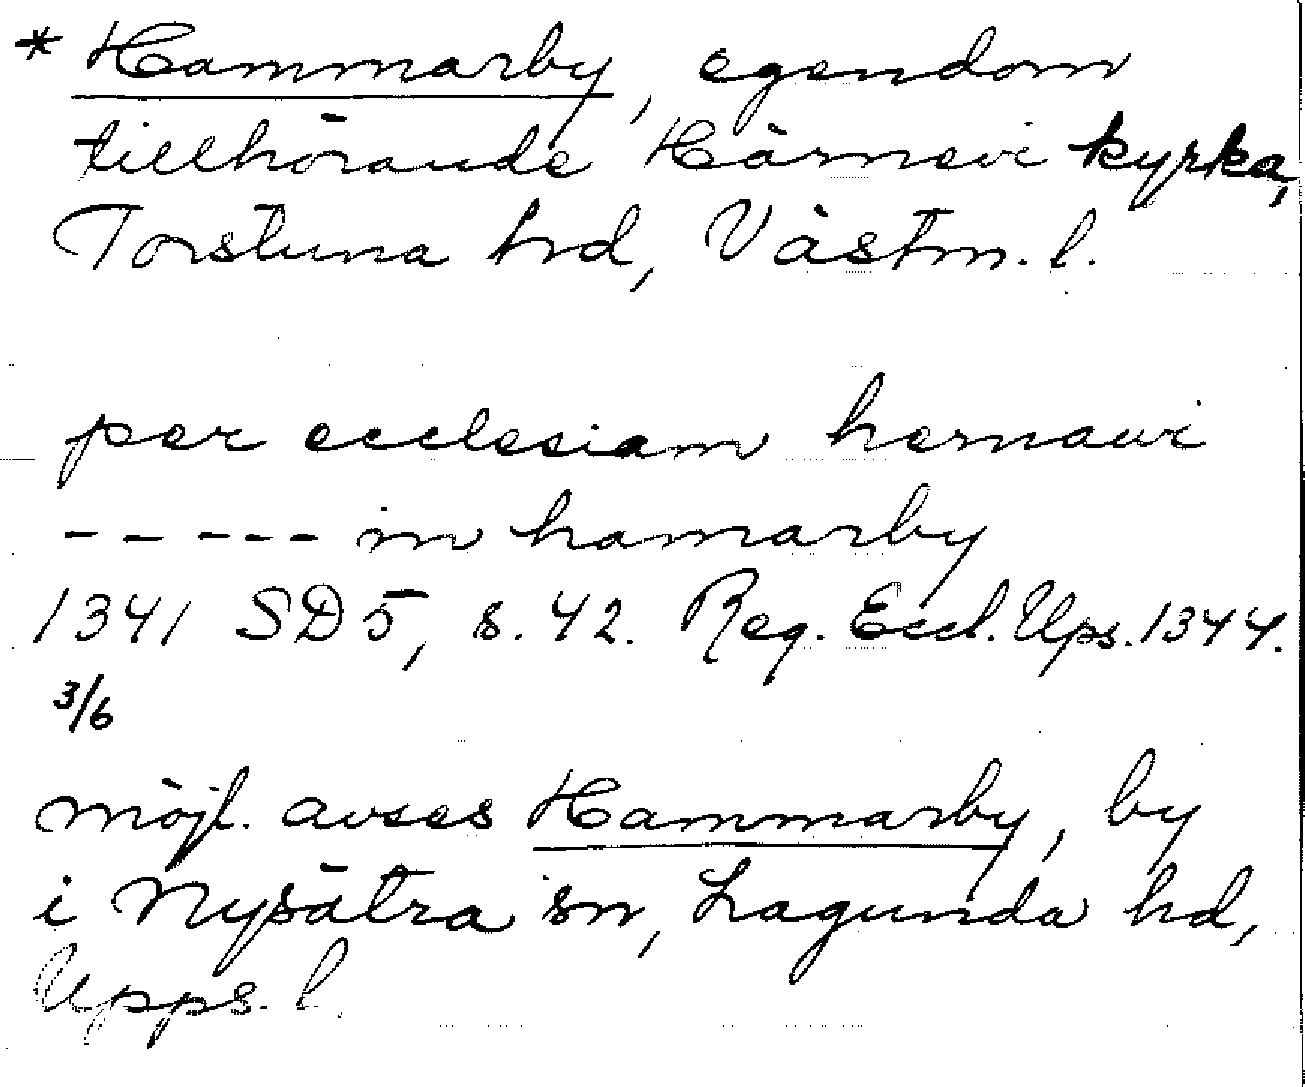 * Hammarby, egendom
tillhörande Härnevi kyrka,
Torstuna hd, Västm. l.
per ecclesiam hernawi
- - - - - in hamarby
1341 SD 5, s. 42. Reg. Eccl. Ups. 1344.
3/6
möjl. avses Hammarby, by
i Nysätra sn, Lagunda hd,
Upps. l.